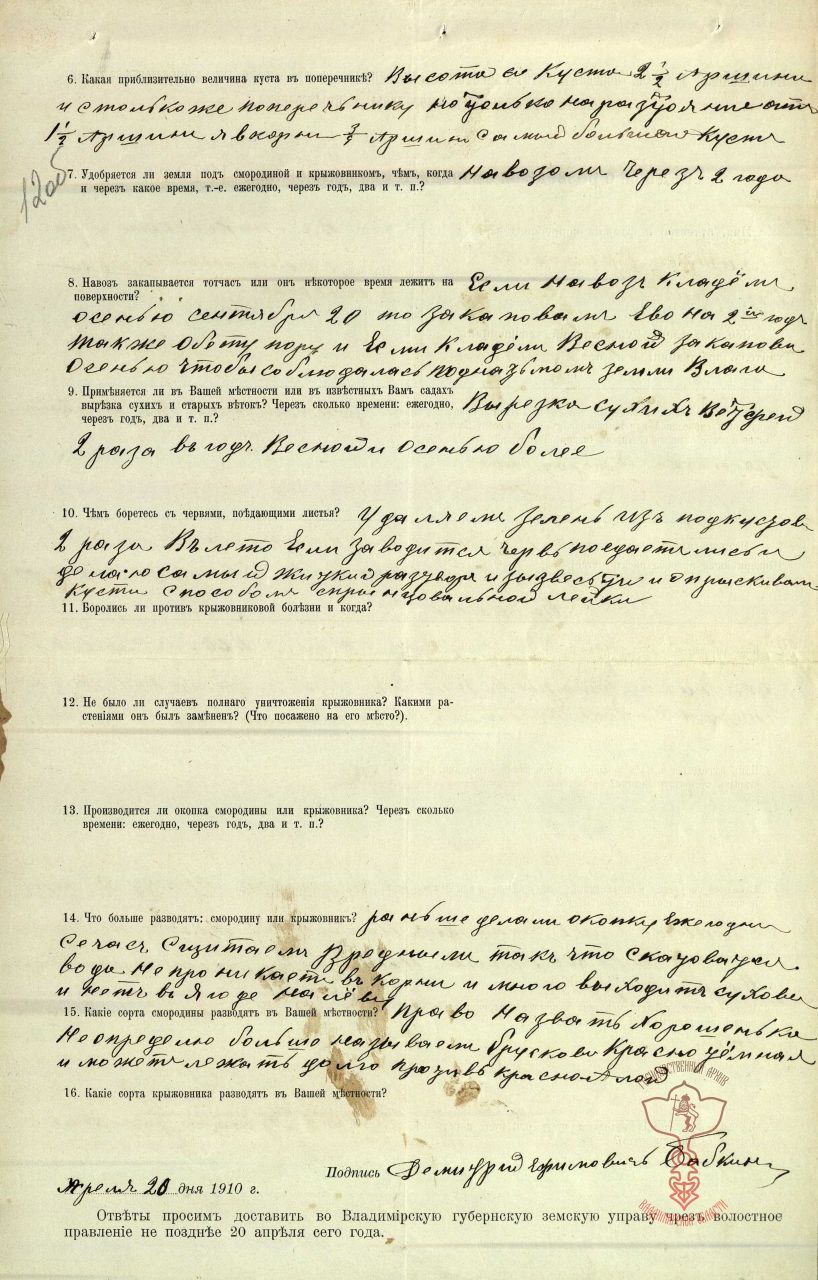 6. Какая приблизительно величина куста въ поперечникѣ? Высота ея куста 2 1/2 Аршина
и столькоже поперечьнику но только на разтояние отъ
1 1/2 Аршина а в корни Аршин самый большой Кустъ
120б
7. Удобряется ли земля подъ смородиной и крыжовникомъ, чѣмъ, когда
и черезъ какое время, т.-е. ежегодно, черезъ годъ, два и т. п.?
навозомъ Черезъ 2 года
8. Навозъ закапывается тотчасъ или онъ нѣкоторое время лежитъ на
поверхности?
Если навозъ Кладёмъ
осенью сентября 20 то закаповамъ Ево на 2 годъ
также обету пору и Если Кладёмъ Весной закапова
Осенью чтобы соблюдалась подназьмомъ земли Влага
9. Примѣняется ли въ Вашей мѣстности или въ извѣстныхъ Вамъ садахъ
вырѣзка сухихъ и старыхъ вѣтокъ? Черезъ сколько времени: ежегодно,
черезъ годъ, два и т. п.?
Вырезка сухихъ Ветфей
2 раза въ годъ Весной и Осенью более
10. Чѣмъ боретесь съ червями, поѣдающими листья? Удаляемъ зелень изъ подкустовъ
2 раза Въ лето Если заводится червь поедаетъ листья
делаю самый жидкий разтворъ и опрыскивамъ
кусты способомъ спрынцовальной лейки
11. Боролись ли противъ крыжовниковой болѣзни и когда?
12. Не было ли случаевъ полнаго уничтоженія крыжовника? Какими ра-
стеніями онъ былъ замѣненъ? (Что посажено на его мѣсто?).
13. Производится ли окопка смородины или крыжовника? Черезъ сколько
времени: ежегодно, черезъ годъ, два и т. п.?
14. Что больше разводятъ: смородину или крыжовникъ? раньше делали окопку Ежегодна
Сечасъ Сщитаемъ Вреднымъ такъ что
вода Непроникаетъ въ Корни и много выходитъ сухова
и нетъ въ Ягоде налёва
15. Какіе сорта смородины разводятъ въ Вашей мѣстности? Право Назвать Хорошенько
Неопределю больше называемъ брускова Краснотёмная
и можетъ лежать долго противъ красноАлой
16. Какіе сорта крыжовника разводятъ въ Вашей мѣстности?
Подпись Демитрий Ефимовичъ Бабкинъ
Апреля 20 дня 1910 г.
Отвѣты просимъ доставить во Владимірскую губернскую земскую управу чрезъ волостное
правленіе не позднѣе 20 апрѣля сего года.